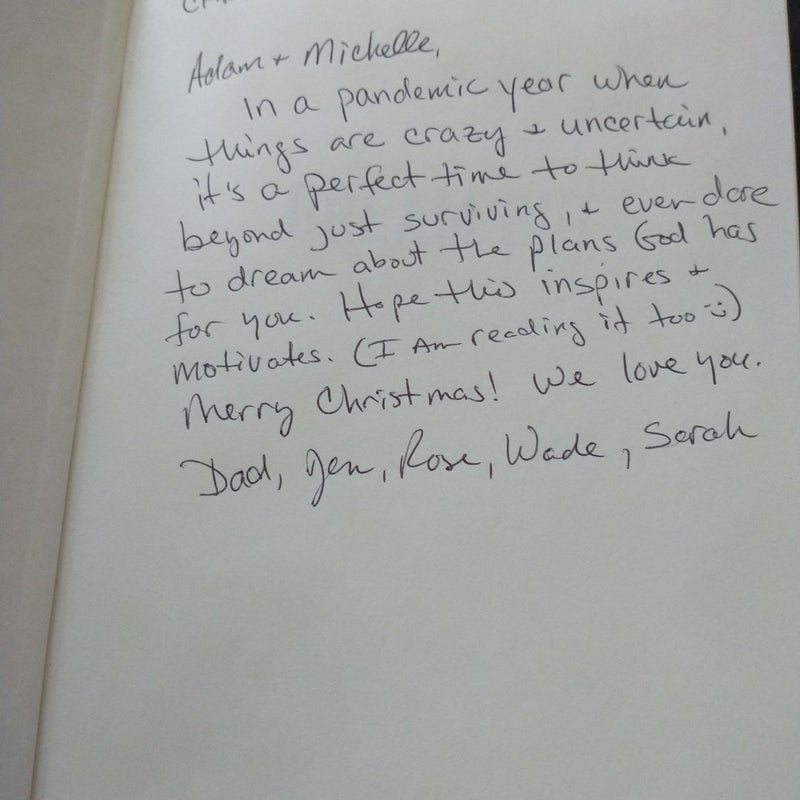 Adam + Michelle,
In a pandemic year when
things are crazy + uncertain,
it's a perfect time to think
beyond just surviving, + even dare
to dream about the plans God has
for you. Hope this inspires +
motivates. (I Am reading it too :))
Merry Christmas! We love you.
Dad, Jen, Rose, Wade, Sarah